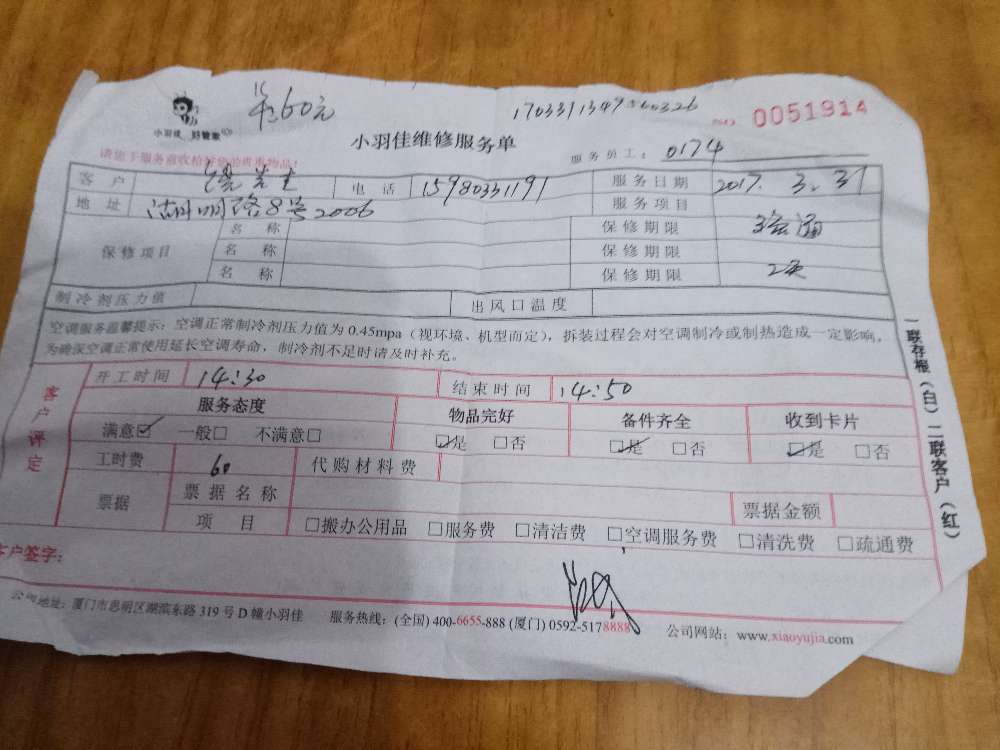 60元
1703311349
小羽佳 好管家
小羽佳维修服务单
NO 0051914
请您于服务前收拾好您的贵重物品!
服务员工: 0174
客户 先生 电话 15980331191 服务日期 2017.3.31
地址 湖明路8号2006 服务项目
保修项目 名称 保修期限
名称 保修期限
名称 保修期限 2天
制冷剂压力值 出风口温度
空调服务温馨提示:空调正常制冷剂压力值为0.45mpa(视环境、机型而定),拆装过程会对空调制冷或制热造成一定影响,
为确保空调正常使用延长空调寿命,制冷剂不足时请及时补充。
客户评定
开工时间 14:30 结束时间 14:50
服务态度 物品完好 备件齐全 收到卡片
满意☑ 一般□ 不满意□ ☑是 □否 ☑是 □否 ☑是 □否
工时费 60 代购材料费
票据 票据名称 票据金额
项目 □搬办公用品 □服务费 □清洁费 □空调服务费 □清洗费 □疏通费
客户签字:
公司地址:厦门市思明区湖滨东路319号D幢小羽佳 服务热线:(全国)400-6655-888(厦门)0592-5178888 公司网站:www.xiaoyujia.com
一联存根(白)二联客户(红)